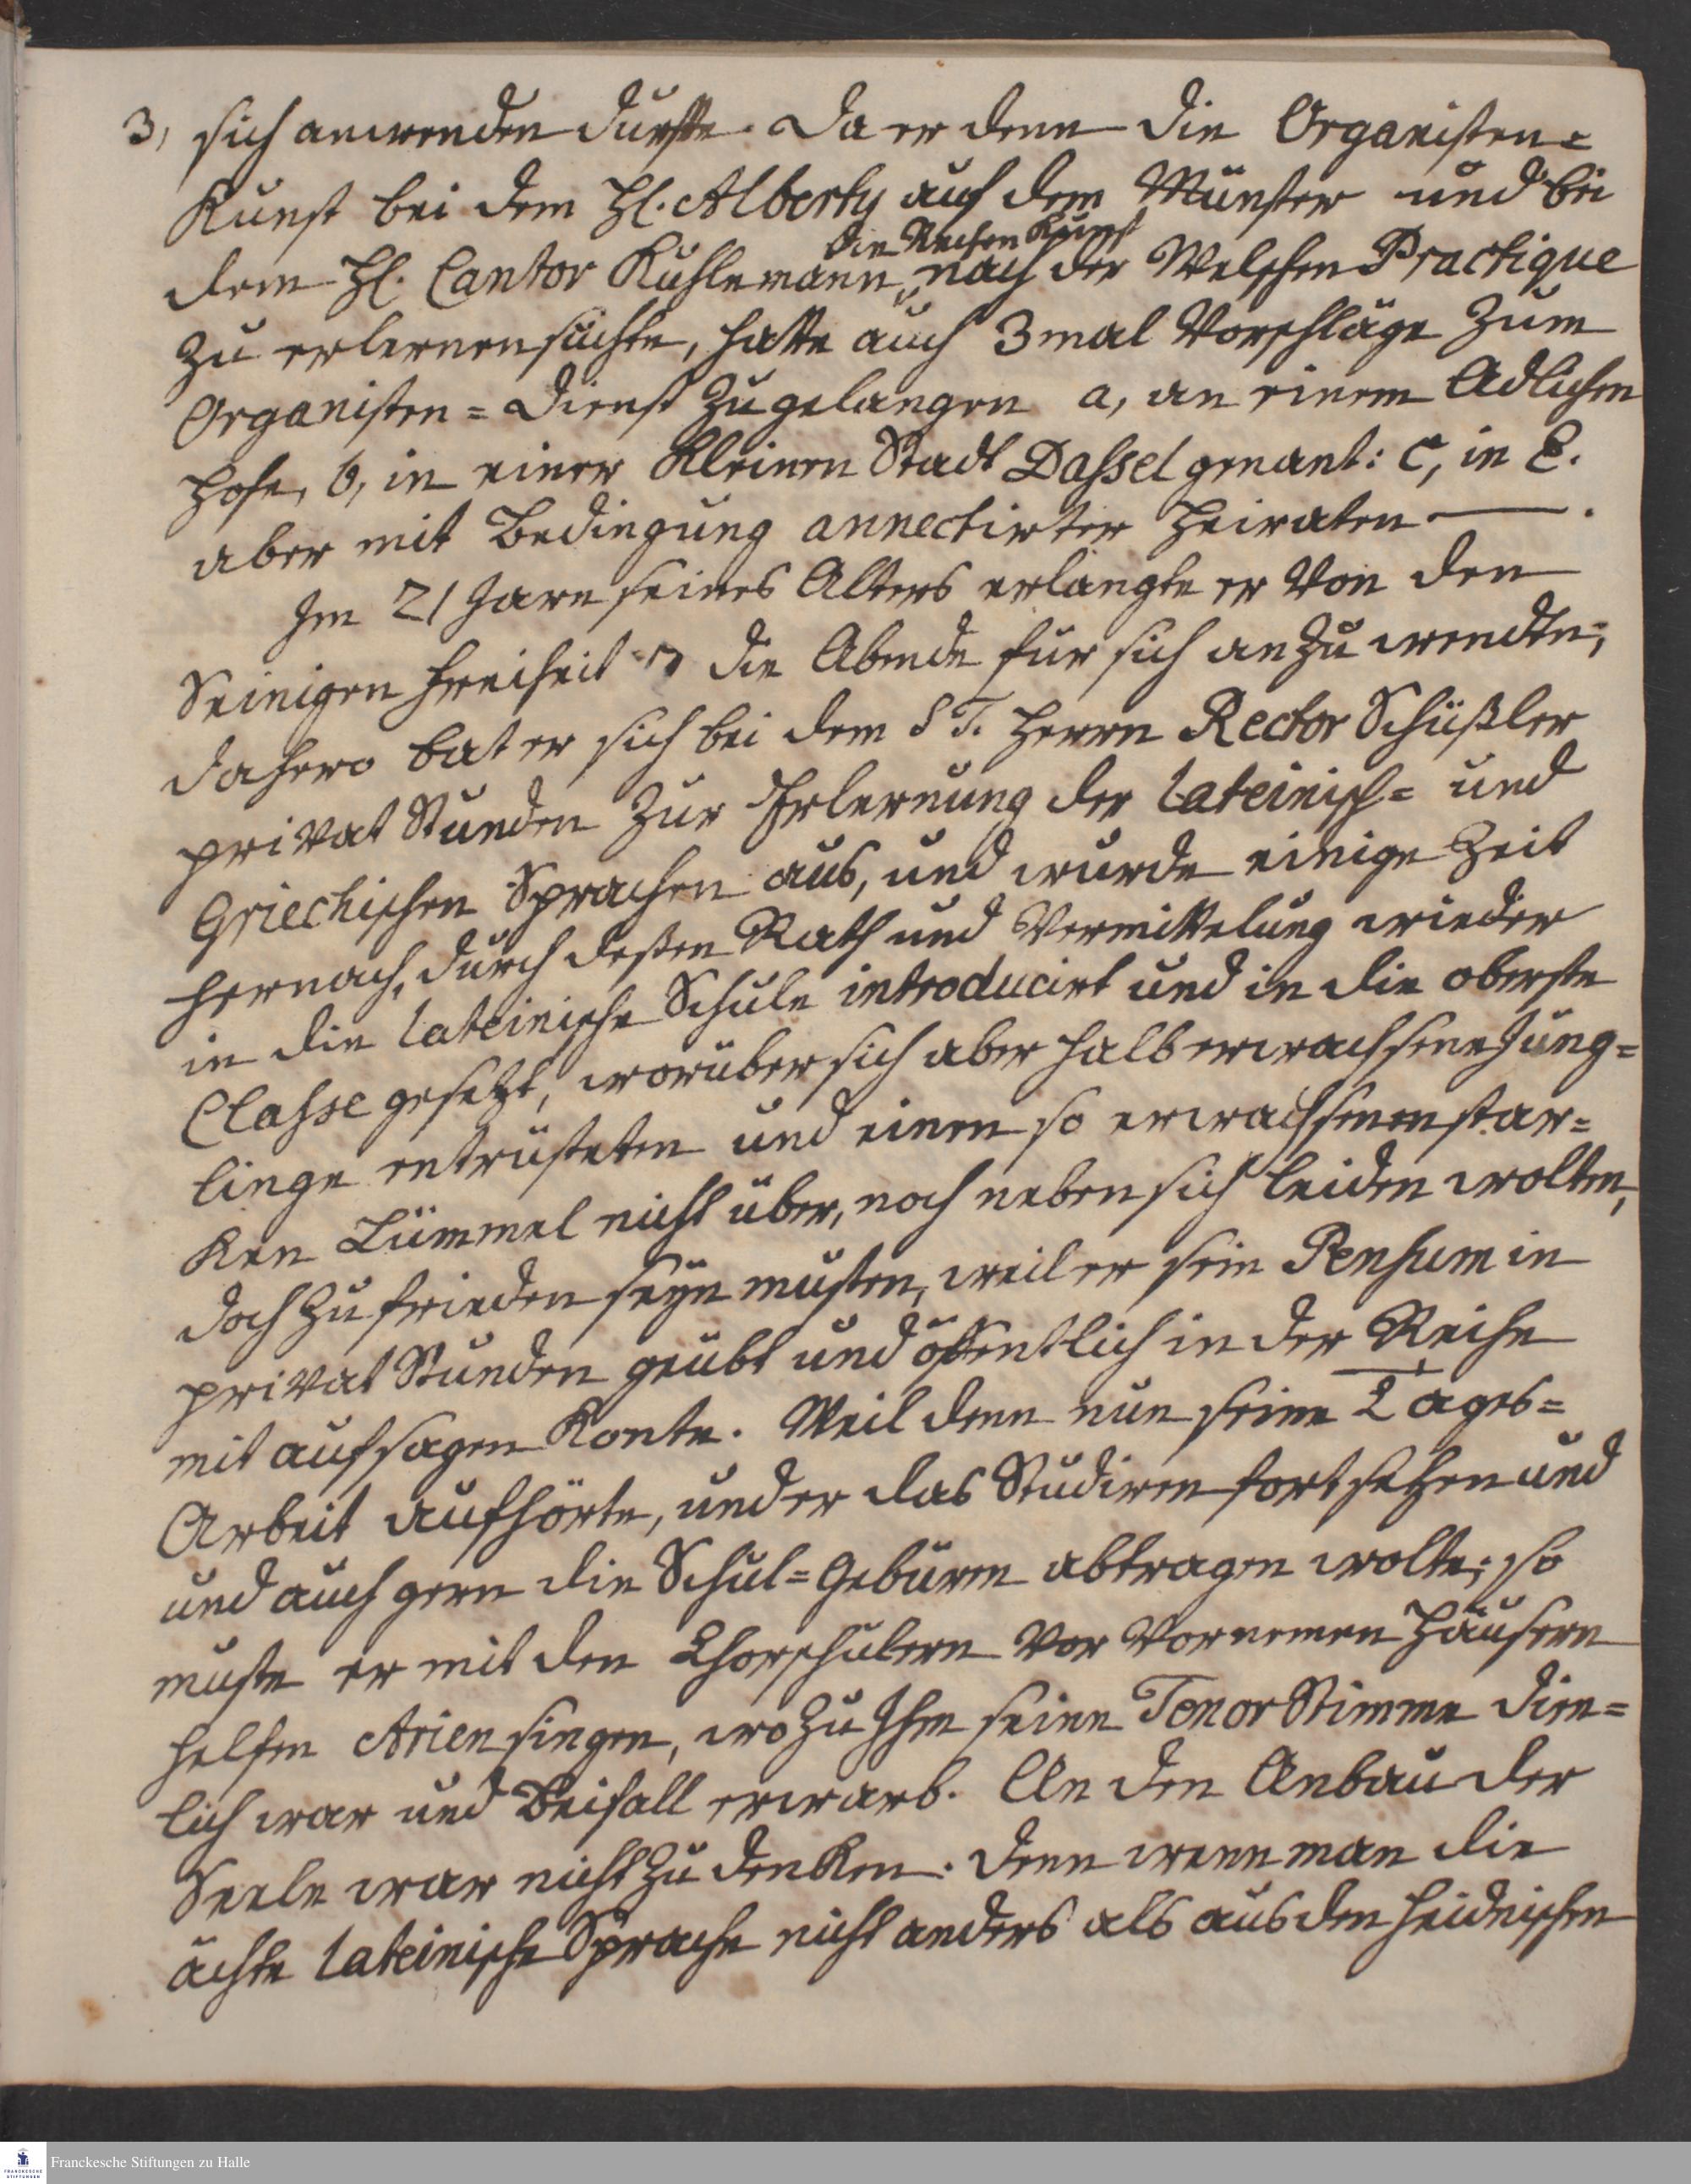 3, sich anwenden durfte. Da er denn die Organisten=
Kunst bei dem Hl. Alberty auf dem Münster und bei
die Rechen Kunst
dem Hl. Cantor Kuhlemann, nach der Welschen Practique
zu erlernen suchte, hatte auch 3mal Vorschläge zum
Organisten=Dienst zu gelangen a, an einem Adlichen
Hofe, b, in einer kleinen Stadt Dassel genant: c, in E.
aber mit Bedingung annectirter Heiraten —.
Im 21 Jare seines Alters erlangte er von den
Seinigen Freiheit die Abende für sich anzuwendten;
dahero bat er sich bei dem S T. Herrn Rector Schüßler
privat Stunden zur Erlernung der lateinisch= und
Griechischen Sprachen aus, und wurde einige Zeit
hernach, durch deßen Rath und Vermittelung wieder
in die lateinische Schule introducirt und in die oberste
Classe gesetzt, worüber sich aber halb erwachsene Jüng=
linge entrüsteten und einen so erwachsenen star=
ken Lümmel nicht über, noch neben sich leiden wolten,
doch zu frieden seyn musten, weil er sein Pensum in
privat Stunden geübt und öffentlich in der Reihe
mit aufsagen konte. Weil denn nun seine Tages=
Arbeit aufhörte, und er das Studiren fortsetzen und
und auch gern die Schul=Gebüren abtragen wolte; so
muste er mit den Chorschülern vor vornemen Häusern
helfen Arien singen, wozu Ihm seine Tenor Stimme dien=
lich war und Beifall erwarb. An den Anbau der
Seele war nicht zu denken. Denn wenn man die
ächte lateinische Sprache nicht anders als aus den heidnischen
Franckesche Stiftungen zu Halle
FRANCKESCHE
STIFTUNGEN